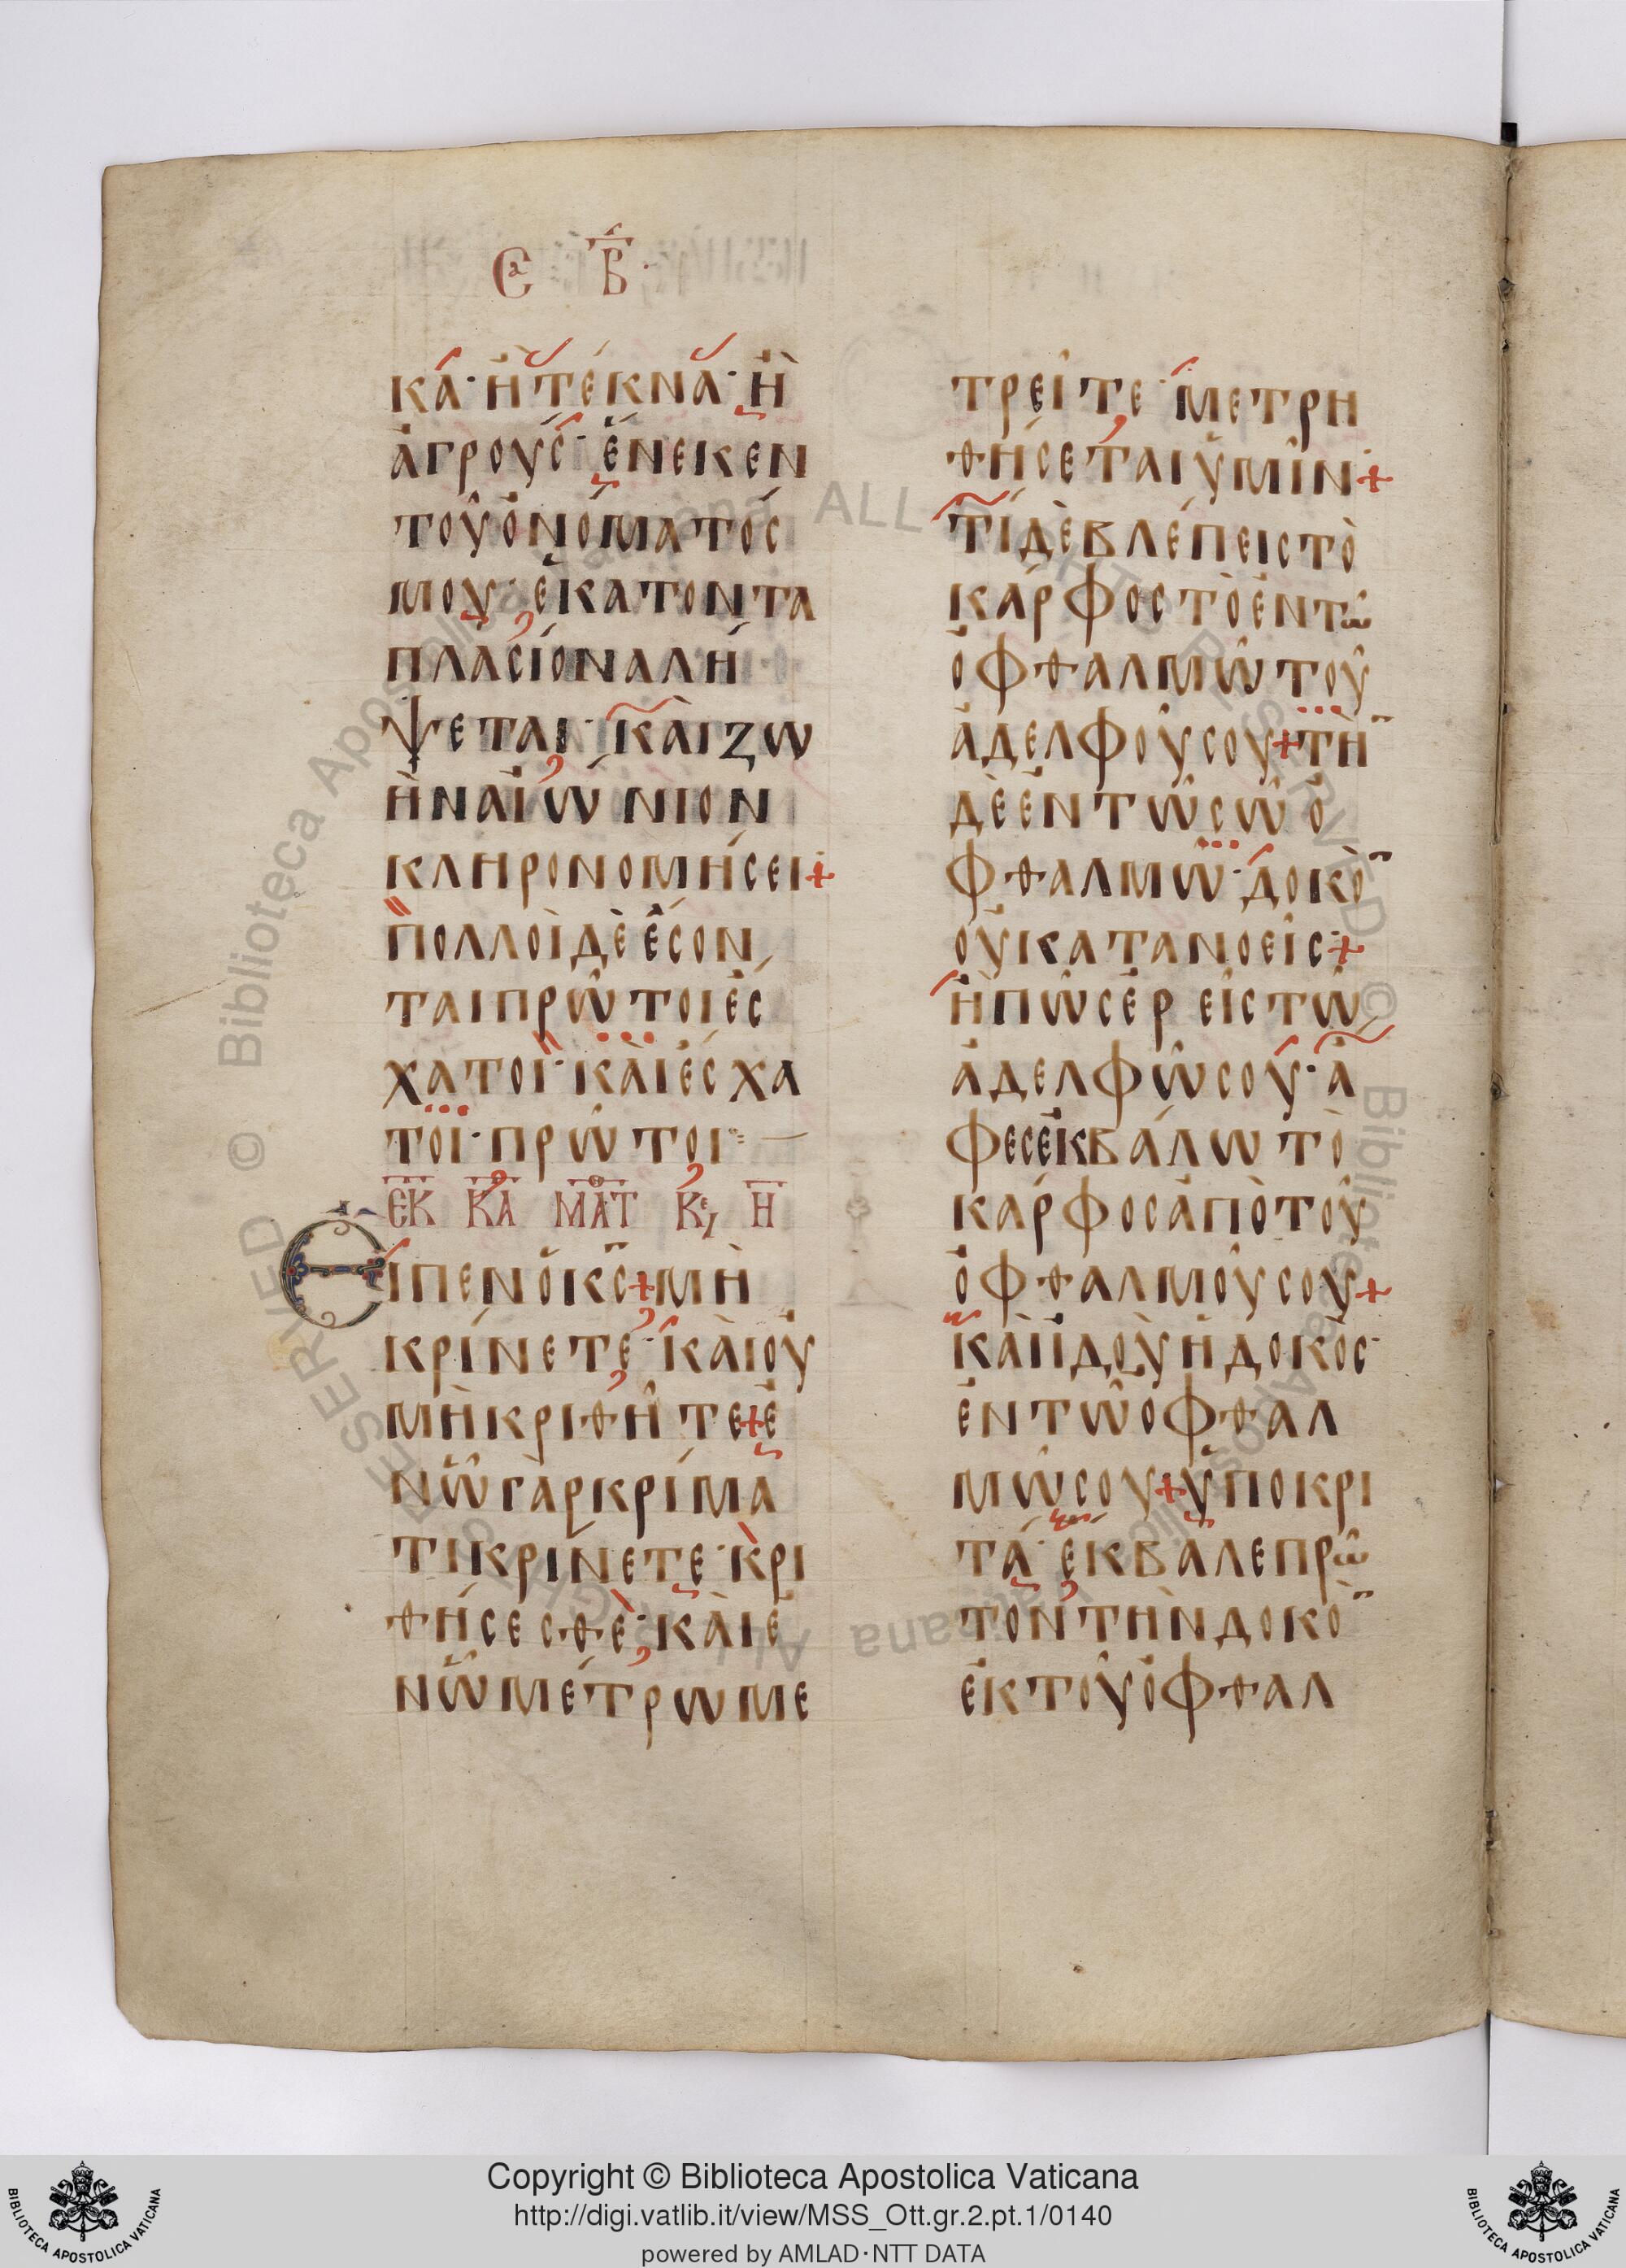 Сα Β̅·
ΚΑ· Ἢ ΤΈΚΝΑ· Ἢ
ἈΓΡΟΥϹ· ἝΝΕΚΕΝ
ΤΟΥ͂ ὈΝΌΜΑΤΌϹ
ΜΟΥ· ἙΚΑΤΟΝΤΑ
ΠΛΑϹΊΟΝΑ ΛΉ
ΨΕΤΑΙ· ΚΑῚ ΖΩ
ῊΝ ΑἸΏΝΙΟΝ
ΚΛΗΡΟΝΟΜΉϹΕΙ+
ΠΟΛΛΟῚ ΔῈ ἜϹΟΝ
ΤΑΙ ΠΡΩ͂ΤΟΙ ἜϹ
ΧΑΤΟΙ· ΚΑῚ ἜϹΧΑ
ΤΟΙ· ΠΡΩ͂ΤΟΙ
ΕΚ ΚΑ ΜΑΤ ΚΕ, Η̅
ΕΙΠΕΝ Ὁ Κ̅Ϲ̅+ΜῊ
ΚΡΊΝΕΤΕ· ΚΑῚ ΟΥ̓
ΜῊ ΚΡΙΘΗ͂ΤΕ+Ἐ
ΝΩ͂ ΓᾺΡ ΚΡΊΜΑ
ΤΙ ΚΡΊΝΕΤΕ· ΚΡΙ
ΘΉϹΕϹΘΕ· ΚΑῚ Ἐ
ΝΩ͂ ΜΈΤΡΩ ΜΕ
ΤΡΕΙ͂ΤΕ· ΜΕΤΡΗ
ΘΉϹΕΤΑΙ ὙΜΙ͂Ν+
ΤΊ ΔῈ ΒΛΈΠΕΙϹ ΤῸ
ΚΆΡΦΟϹ ΤῸ ἘΝ ΤΩ͂
ὈΦΘΑΛΜΩ͂ ΤΟΥ͂
ἈΔΕΛΦΟΥ͂ ϹΟΥ+ΤῊ̅
ΔῈ ἘΝ ΤΩ͂ ϹΩ͂ Ὀ
ΦΘΑΛΜΩ͂· ΔΟΚῸ̅
ΟΥ̓ ΚΑΤΑΝΟΕΙ͂Ϲ+
Ἢ ΠΩ͂Ϲ ἘΡΕΙ͂Ϲ ΤΩ͂
ἈΔΕΛΦΩ͂ ϹΟΥ· Ἄ
ΦΕϹ ἘΚΒΆΛΩ ΤῸ
ΚΆΡΦΟϹ ἈΠῸ ΤΟΥ͂
ὈΦΘΑΛΜΟΥ͂ ϹΟΥ+
ΚΑῚ ἸΔΟῪ Ἡ ΔΟΚῸϹ·
ἘΝ ΤΩ͂ ὈΦΘΑΛ
ΜΩ͂ ϹΟΥ+ὙΠΟΚΡΙ
ΤΆ· ἜΚΒΑΛΕ ΠΡΩ͂
ΤΟΝ ΤῊΝ ΔΟΚῸ̅
ἘΚ ΤΟΥ͂ ὈΦΘΑΛ
Copyright © Biblioteca Apostolica Vaticana
http://digi.vatlib.it/view/MSS_Ott.gr.2.pt.1/0140
powered by AMLAD·NTT DATA
BIBLIOTECA APOSTOLICA VATICANA
BIBLIOTECA APOSTOLICA VATICANA